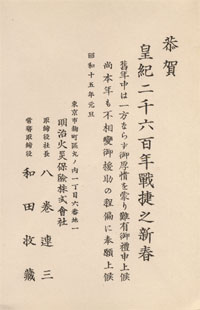 恭賀
皇紀二千六百年戰捷之新春
舊年中は一方ならず御厚情を蒙り難有御禮申上候
尚本年も不相變御援助の程偏に奉願上候
昭和十五年元旦
東京市麴町區丸ノ内一丁目六番地一
明治火災保險株式會社
取締役社長 八巻連三
常務取締役 和田收藏